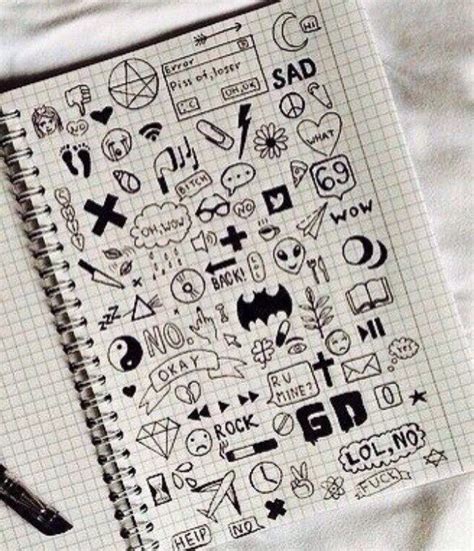 HI
Error
Piss of, loser
: C
OH, OK
SAD
NO
WHAT
BITCH
69
OH, WOW
NO
WOW
BACK!
NO.
OKAY
R U
MINE?
ROCK
GD
0
LOL, NO
FUCK
HELP
NO